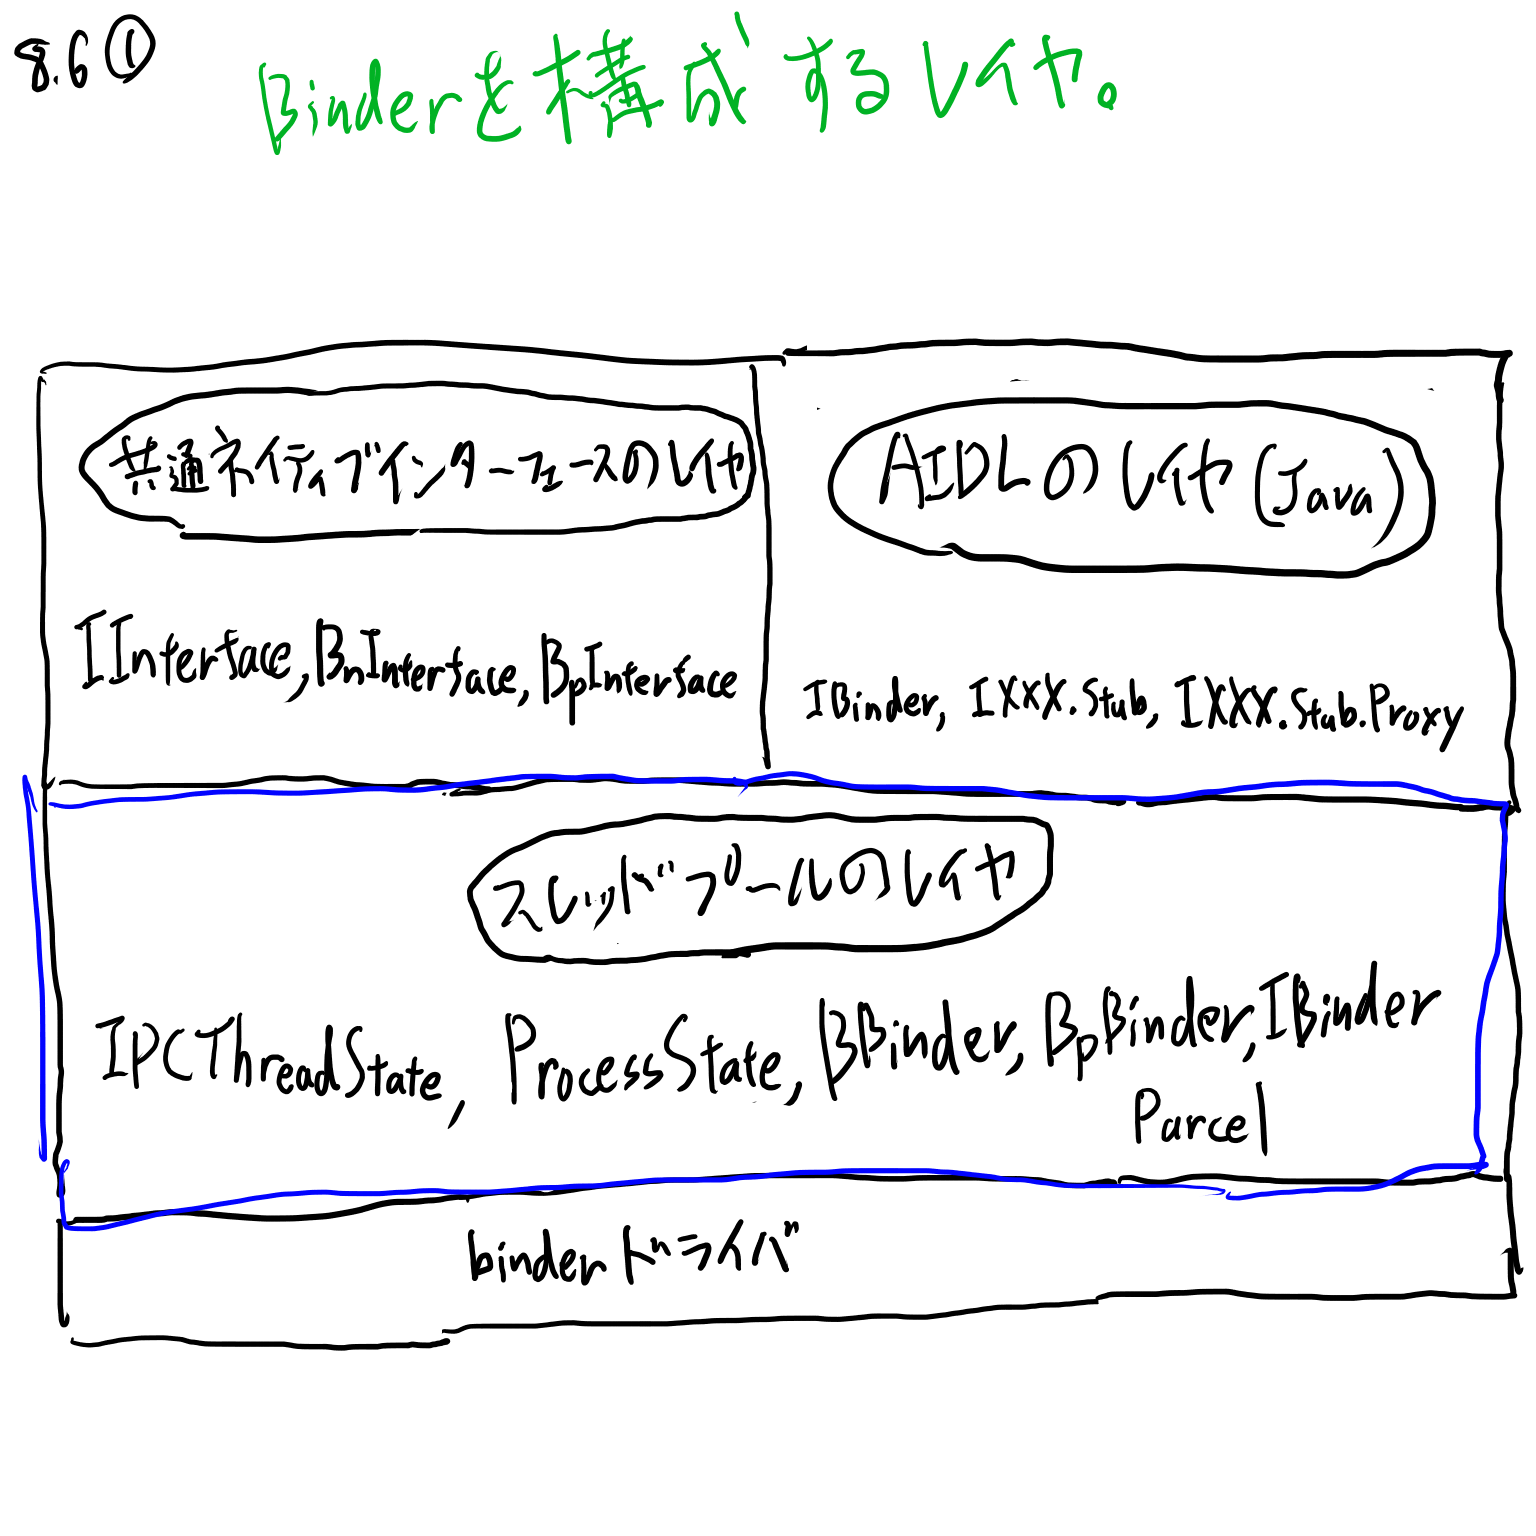 8.6 ①
Binderを構成するレイヤ。
共通ネイティブインターフェースのレイヤ
AIDLのレイヤ(Java)
IInterface, BnInterface, BpInterface
IBinder, IXXX.Stub, IXXX.Stub.Proxy
スレッドプールのレイヤ
IPCThreadState, ProcessState, BBinder, BpBinder, IBinder
Parcel
binderドライバ